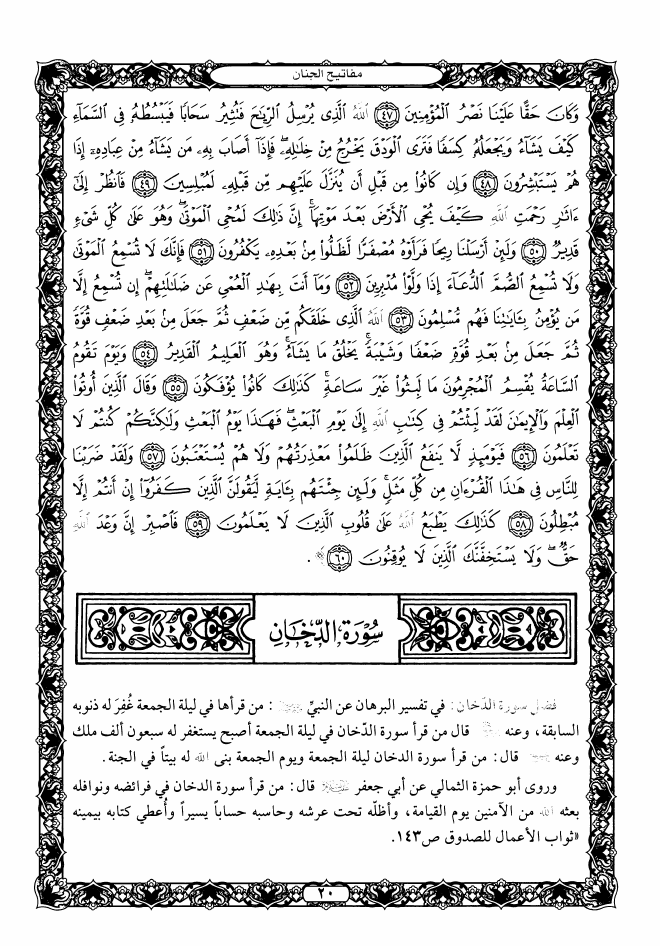 مفاتيح الجنان
وَكَانَ حَقًّا عَلَيْنَا نَصْرُ الْمُؤْمِنِينَ ﴿٤٧﴾ اللَّهُ الَّذِى يُرْسِلُ الرِّيَٰحَ فَتُثِيرُ سَحَابًا فَيَبْسُطُهُۥ فِى السَّمَآءِ
كَيْفَ يَشَآءُ وَيَجْعَلُهُۥ كِسَفًا فَتَرَى الْوَدْقَ يَخْرُجُ مِنْ خِلَٰلِهِۦ فَإِذَآ أَصَابَ بِهِۦ مَن يَشَآءُ مِنْ عِبَادِهِۦٓ إِذَا
هُمْ يَسْتَبْشِرُونَ ﴿٤٨﴾ وَإِن كَانُوا۟ مِن قَبْلِ أَن يُنَزَّلَ عَلَيْهِم مِّن قَبْلِهِۦ لَمُبْلِسِينَ ﴿٤٩﴾ فَانظُرْ إِلَىٰٓ
ءَاثَٰرِ رَحْمَتِ اللَّهِ كَيْفَ يُحْىِ الْأَرْضَ بَعْدَ مَوْتِهَآ إِنَّ ذَٰلِكَ لَمُحْىِ الْمَوْتَىٰ وَهُوَ عَلَىٰ كُلِّ شَىْءٍ
قَدِيرٌ ﴿٥٠﴾ وَلَئِنْ أَرْسَلْنَا رِيحًا فَرَأَوْهُ مُصْفَرًّا لَّظَلُّوا۟ مِنۢ بَعْدِهِۦ يَكْفُرُونَ ﴿٥١﴾ فَإِنَّكَ لَا تُسْمِعُ الْمَوْتَىٰ
وَلَا تُسْمِعُ الصُّمَّ الدُّعَآءَ إِذَا وَلَّوْا۟ مُدْبِرِينَ ﴿٥٢﴾ وَمَآ أَنتَ بِهَٰدِ الْعُمْىِ عَن ضَلَٰلَتِهِمْ إِن تُسْمِعُ إِلَّا
مَن يُؤْمِنُ بِـَٔايَٰتِنَا فَهُم مُّسْلِمُونَ ﴿٥٣﴾ اللَّهُ الَّذِى خَلَقَكُم مِّن ضَعْفٍ ثُمَّ جَعَلَ مِنۢ بَعْدِ ضَعْفٍ قُوَّةً
ثُمَّ جَعَلَ مِنۢ بَعْدِ قُوَّةٍ ضَعْفًا وَشَيْبَةً يَخْلُقُ مَا يَشَآءُ وَهُوَ الْعَلِيمُ الْقَدِيرُ ﴿٥٤﴾ وَيَوْمَ تَقُومُ
السَّاعَةُ يُقْسِمُ الْمُجْرِمُونَ مَا لَبِثُوا۟ غَيْرَ سَاعَةٍ كَذَٰلِكَ كَانُوا۟ يُؤْفَكُونَ ﴿٥٥﴾ وَقَالَ الَّذِينَ أُوتُوا۟
الْعِلْمَ وَالْإِيمَٰنَ لَقَدْ لَبِثْتُمْ فِى كِتَٰبِ اللَّهِ إِلَىٰ يَوْمِ الْبَعْثِ فَهَٰذَا يَوْمُ الْبَعْثِ وَلَٰكِنَّكُمْ كُنتُمْ لَا
تَعْلَمُونَ ﴿٥٦﴾ فَيَوْمَئِذٍ لَّا يَنفَعُ الَّذِينَ ظَلَمُوا۟ مَعْذِرَتُهُمْ وَلَا هُمْ يُسْتَعْتَبُونَ ﴿٥٧﴾ وَلَقَدْ ضَرَبْنَا
لِلنَّاسِ فِى هَٰذَا الْقُرْءَانِ مِن كُلِّ مَثَلٍ وَلَئِن جِئْتَهُم بِـَٔايَةٍ لَّيَقُولَنَّ الَّذِينَ كَفَرُوٓا۟ إِنْ أَنتُمْ إِلَّا
مُبْطِلُونَ ﴿٥٨﴾ كَذَٰلِكَ يَطْبَعُ اللَّهُ عَلَىٰ قُلُوبِ الَّذِينَ لَا يَعْلَمُونَ ﴿٥٩﴾ فَاصْبِرْ إِنَّ وَعْدَ اللَّهِ
حَقٌّ وَلَا يَسْتَخِفَّنَّكَ الَّذِينَ لَا يُوقِنُونَ ﴿٦٠﴾.
سُورَةُ الدّخَانِ
فضل سورة الدّخان: في تفسير البرهان عن النبيّ : من قرأها في ليلة الجمعة غُفِرَ له ذنوبه
السابقة، وعنه قال من قرأ سورة الدّخان في ليلة الجمعة أصبح يستغفر له سبعون ألف ملك
وعنه قال: من قرأ سورة الدخان ليلة الجمعة ويوم الجمعة بنى الله له بيتاً في الجنة.
وروى أبو حمزة الثمالي عن أبي جعفر قال: من قرأ سورة الدخان في فرائضه ونوافله
بعثه الله من الآمنين يوم القيامة، وأظلّه تحت عرشه وحاسبه حساباً يسيراً وأُعطي كتابه بيمينه
«ثواب الأعمال للصدوق ص١٤٣.
٢٠